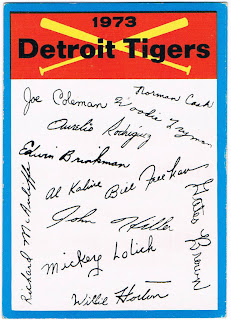 1973
Detroit Tigers
Joe Coleman
Norman Cash
Woodie Fryman
Aurelio Rodriguez
Edwin Brinkman
Al Kaline
Bill Freehan
Gates Brown
John Hiller
Richard McAuliffe
Mickey Lolich
Willie Horton